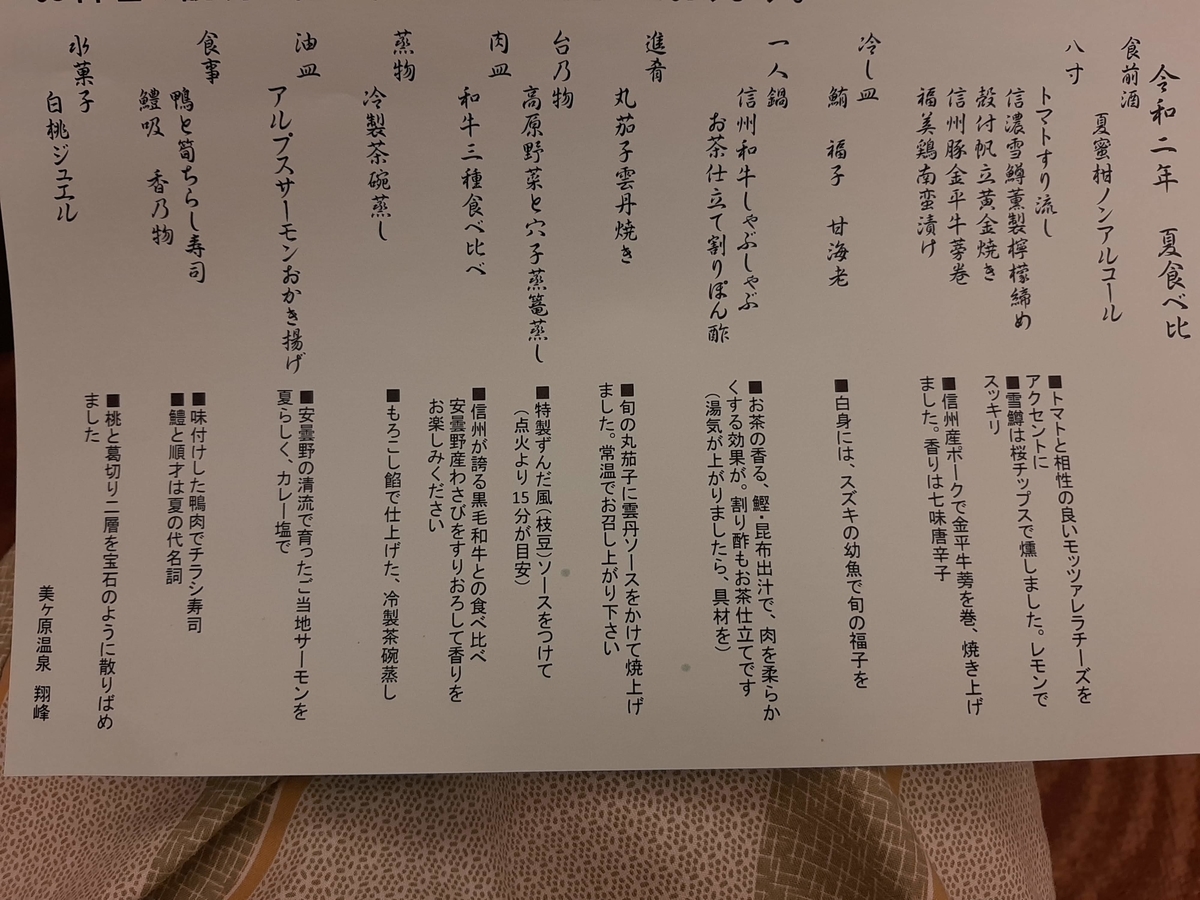 令和二年 夏食べ比
食前酒
夏蜜柑ノンアルコール
八寸
トマトすり流し
信濃雪鱒薫製檸檬締め
殻付帆立黄金焼き
信州豚金平牛蒡巻
福美鶏南蛮漬け
冷し皿
鮪 福子 甘海老
一人鍋
信州和牛しゃぶしゃぶ
お茶仕立て割りぽん酢
進肴
丸茄子雲丹焼き
台乃物
高原野菜と穴子蒸篭蒸し
肉皿
和牛三種食べ比べ
蒸物
冷製茶碗蒸し
油皿
アルプスサーモンおかき揚げ
食事
鴨と筍ちらし寿司
鱧吸 香乃物
水菓子
白桃ジュエル
■トマトと相性の良いモッツアレラチーズを
アクセントに
■雪鱒は桜チップスで燻しました。レモンで
スッキリ
■信州産ポークで金平牛蒡を巻、焼き上げ
ました。香りは七味唐辛子
■白身には、スズキの幼魚で旬の福子を
■お茶の香る、鰹・昆布出汁で、肉を柔らか
くする効果が。割り酢もお茶仕立てです
（湯気が上がりましたら、具材を）
■旬の丸茄子に雲丹ソースをかけて焼上げ
ました。常温でお召し上がり下さい
■特製ずんだ風（枝豆）ソースをつけて
（点火より15分が目安）
■信州が誇る黒毛和牛との食べ比べ
安曇野産わさびをすりおろして香りを
お楽しみください
■もろこし餡で仕上げた、冷製茶碗蒸し
■安曇野の清流で育ったご当地サーモンを
夏らしく、カレー塩で
■味付けした鴨肉でチラシ寿司
■鱧と順才は夏の代名詞
■桃と葛切り二層を宝石のように散りばめ
ました
美ヶ原温泉 翔峰